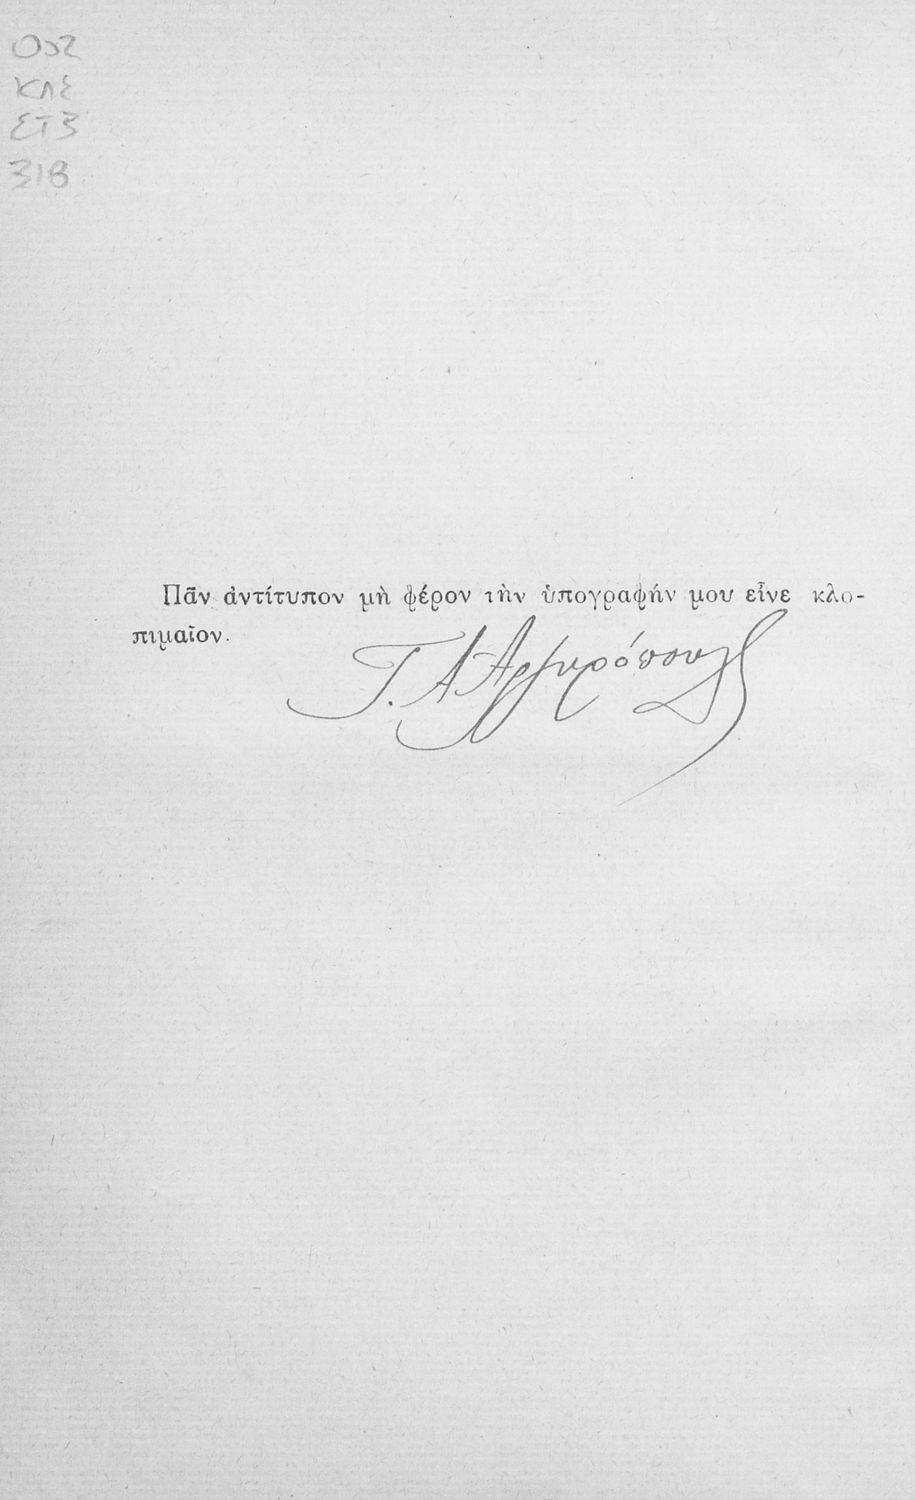 002
ΚΛΣ
ΣΤ3
31Β
Πᾶν ἀντίτυπον μὴ φέρον τὴν ὑπογραφήν μου εἶνε κλο-
πιμαῖον.
Γ. Α Αργυρόπουλος